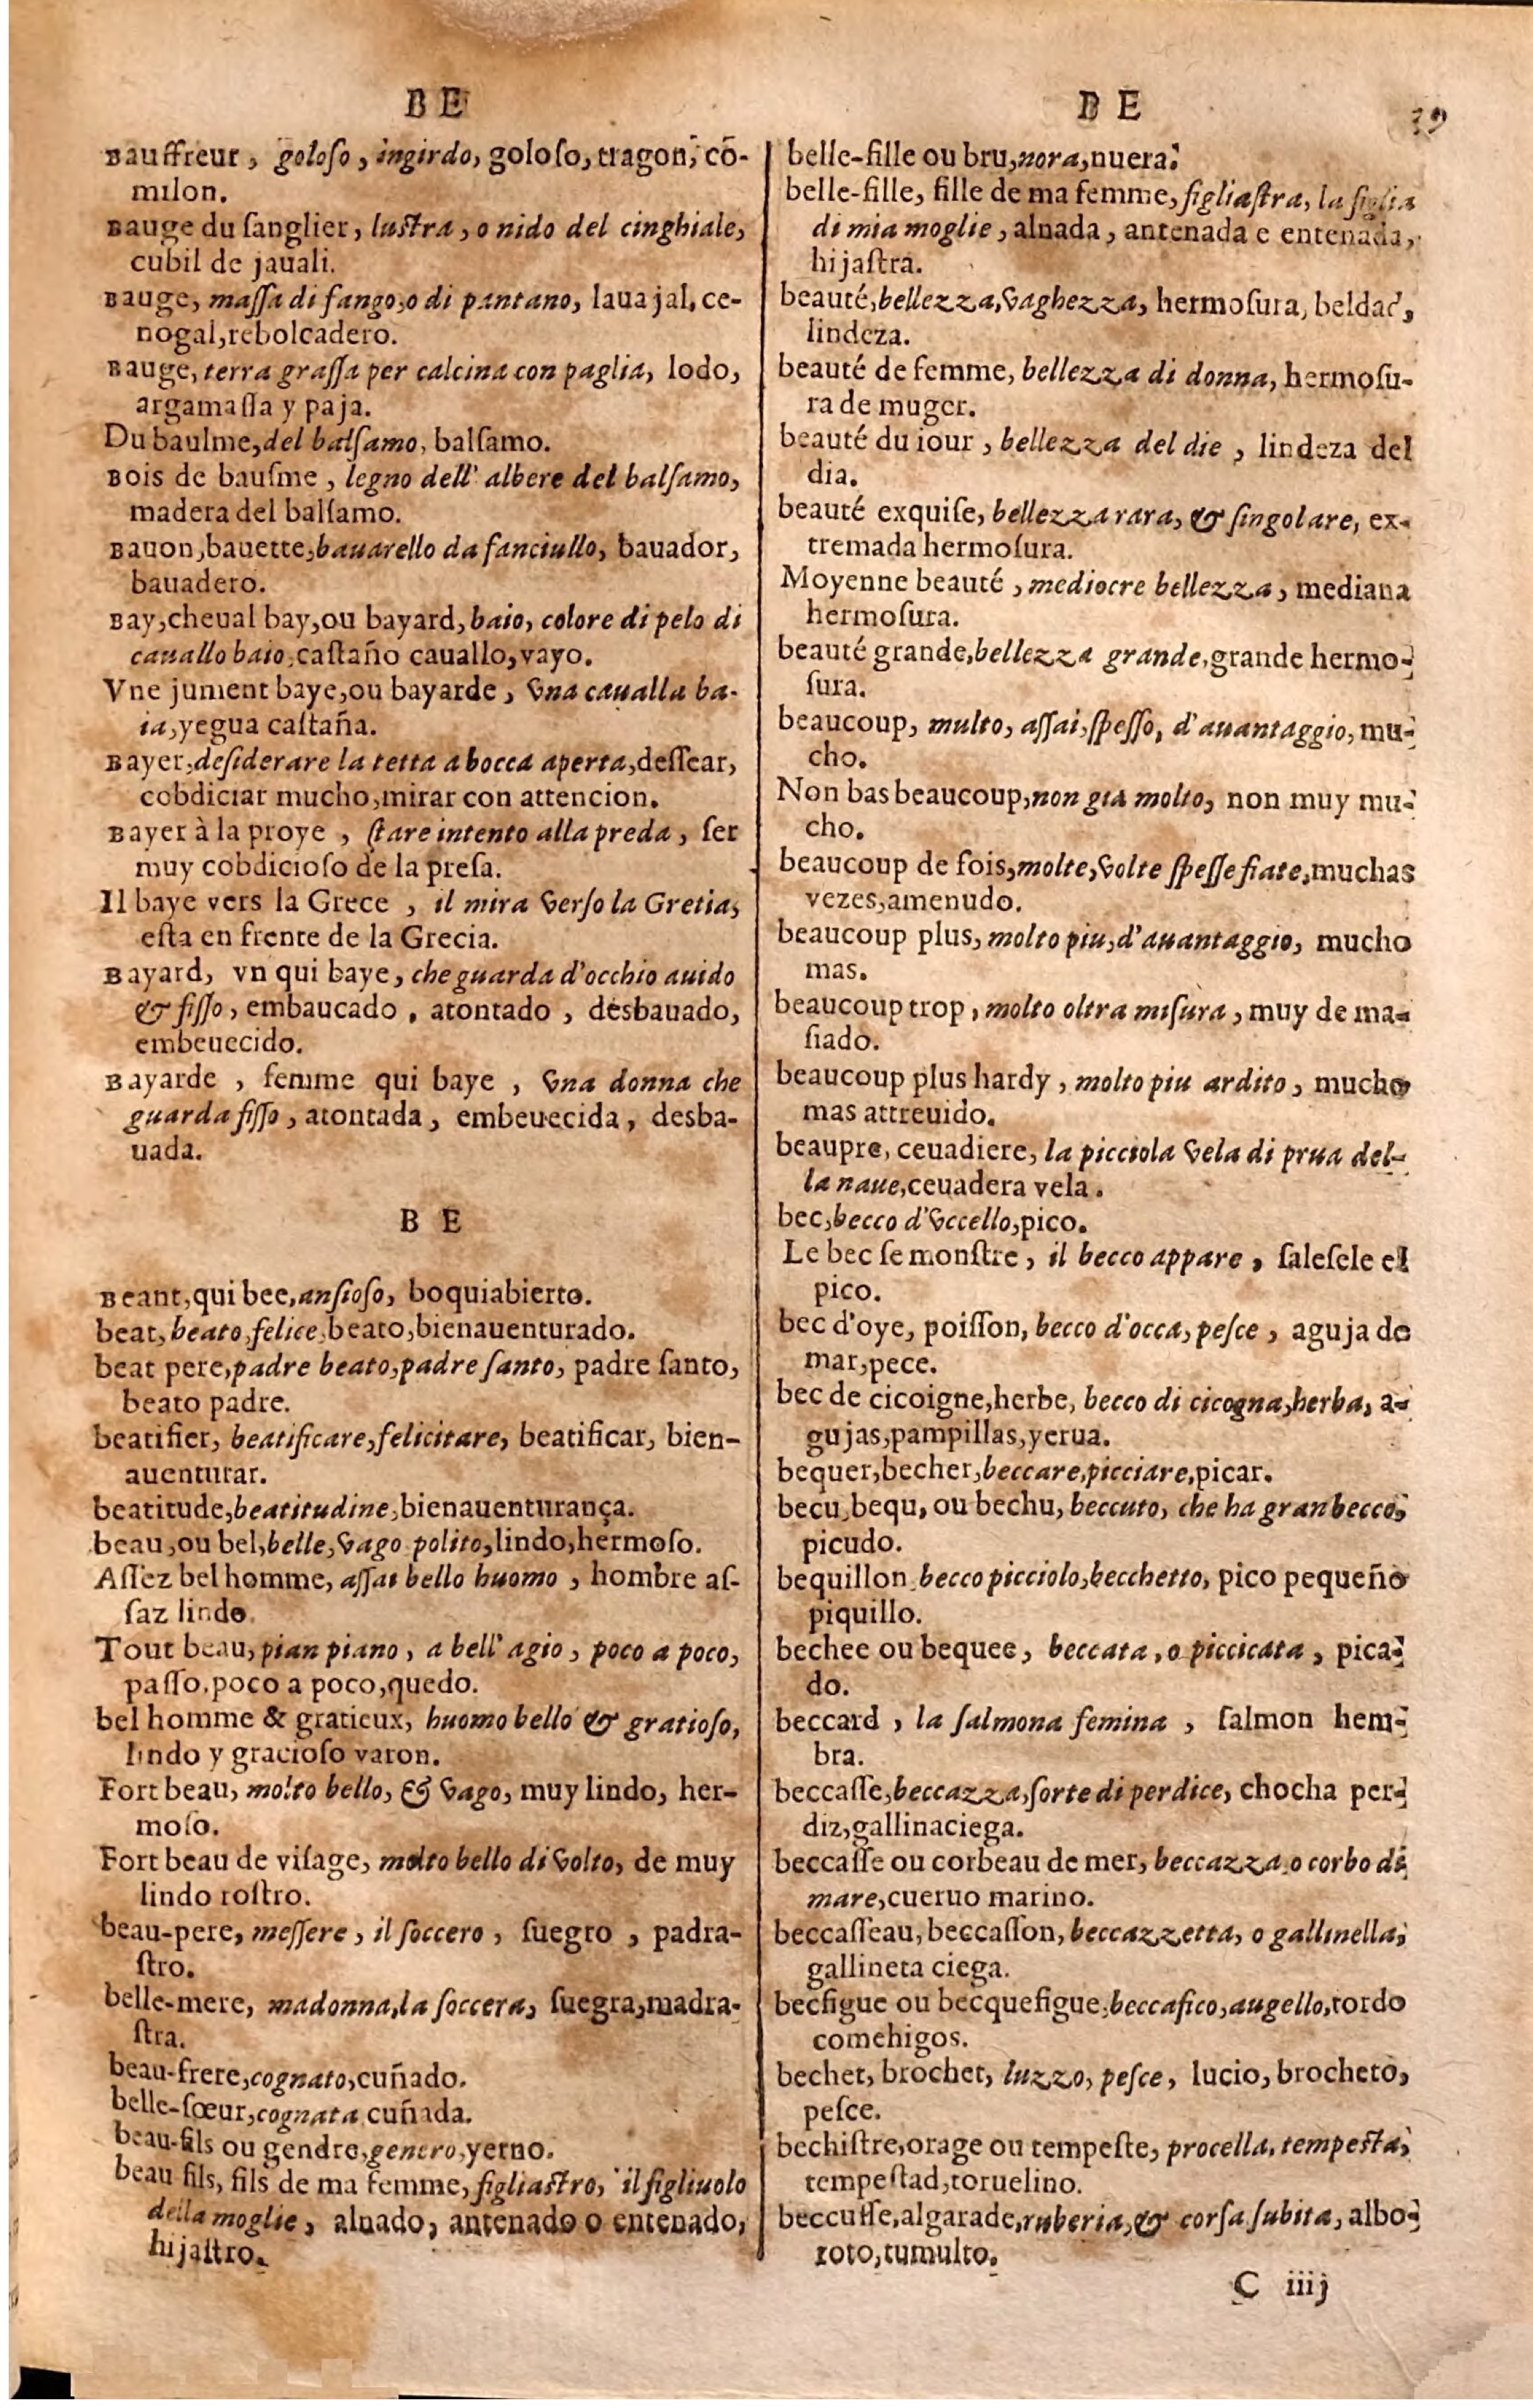 B E
Bauffreur, goloſo, ingirdo, goloſo, tragon, cõ-
milon.
Bauge du ſanglier, luſtra, o nido del cinghiale,
cubil de jauali.
Bauge, maſſa di fango, o di pantano, lauajal, ce-
nogal, rebolcadero.
Bauge, terra graſſa per calcina con paglia, lodo,
argamaſſa y paja.
Du baulme, del balſamo, balſamo.
Bois de bauſme, legno dell' albere del balſamo,
madera del balſamo.
Bauon, bauette, bauarello da fanciullo, bauador,
bauadero.
Bay, cheual bay, ou bayard, baio, colore di pelo di
cauallo baio, caſtaño cauallo, vayo.
Vne jument baye, ou bayarde, vna caualla ba-
ia, yegua caſtaña.
Bayer, deſiderare la tetta a bocca aperta, deſſear,
cobdiciar mucho, mirar con attencion.
Bayer à la proye, ſtare intento alla preda, ſer
muy cobdicioſo de la preſa.
Il baye vers la Grece, il mira verſo la Gretia,
eſta en frente de la Grecia.
Bayard, vn qui baye, che guarda d'occhio auido
& fiſſo, embaucado, atontado, desbauado,
embeuecido.
Bayarde, femme qui baye, vna donna che
guarda fiſſo, atontada, embeuecida, desba-
uada.
B E
Beant, qui bee, anſioſo, boquiabierto.
beat, beato, felice, beato, bienauenturado.
beat pere, padre beato, padre ſanto, padre ſanto,
beato padre.
beatifier, beatificare, felicitare, beatificar, bien-
auenturar.
beatitude, beatitudine, bienauenturança.
beau, ou bel, belle, vago polito, lindo, hermoſo.
Aſſez bel homme, aſſai bello huomo, hombre aſ-
ſaz lindo.
Tout beau, pian piano, a bell' agio, poco a poco,
paſſo, poco a poco, quedo.
bel homme & gratieux, huomo bello & gratioſo,
lindo y gracioſo varon.
Fort beau, molto bello, & vago, muy lindo, her-
moſo.
Fort beau de viſage, molto bello di volto, de muy
lindo roſtro.
beau-pere, meſſere, il ſoccero, ſuegro, padra-
ſtro.
belle-mere, madonna, la ſoccera, ſuegra, madra-
ſtra.
beau-frere, cognato, cuñado.
belle-ſœur, cognata, cuñada.
beau-fils ou gendre, genero, yerno.
beau fils, fils de ma femme, figliaſtro, il figliuolo
della moglie, alnado, antenado o entenado,
hijaſtro.
B E 39
belle-fille ou bru, nora, nuera.
belle-fille, fille de ma femme, figliaſtra, la figlia
di mia moglie, alnada, antenada e entenada,
hijaſtra.
beauté, bellezza, vaghezza, hermoſura, beldad,
lindeza.
beauté de femme, bellezza di donna, hermoſu-
ra de muger.
beauté du iour, bellezza del die, lindeza del
dia.
beauté exquiſe, bellezza rara, & ſingolare, ex-
tremada hermoſura.
Moyenne beauté, mediocre bellezza, mediana
hermoſura.
beauté grande, bellezza grande, grande hermo-
ſura.
beaucoup, multo, aſſai, ſpeſſo, d'auantaggio, mu-
cho.
Non bas beaucoup, non gia molto, non muy mu-
cho.
beaucoup de fois, molte, volte ſpeſſe fiate, muchas
vezes, amenudo.
beaucoup plus, molto piu, d'auantaggio, mucho
mas.
beaucoup trop, molto oltra miſura, muy de ma-
ſiado.
beaucoup plus hardy, molto piu ardito, mucho
mas attreuido.
beaupre, ceuadiere, la picciola vela di prua del-
la naue, ceuadera vela.
bec, becco d'vccello, pico.
Le bec ſe monſtre, il becco appare, ſaleſele el
pico.
bec d'oye, poiſſon, becco d'occa, peſce, aguja de
mar, pece.
bec de cicoigne, herbe, becco di cicogna, herba, a-
gujas, pampillas, yerua.
bequer, becher, beccare, picciare, picar.
becu, bequ, ou bechu, beccuto, che ha gran becco,
picudo.
bequillon, becco picciolo, becchetto, pico pequeño
piquillo.
bechee ou bequee, beccata, o piccicata, pica-
do.
beccard, la ſalmona femina, ſalmon hem-
bra.
beccaſſe, beccazza, ſorte di perdice, chocha per-
diz, gallinaciega.
beccaſſe ou corbeau de mer, beccazza o corbo di
mare, cueruo marino.
beccaſſeau, beccaſſon, beccazzetta, o gallinella,
gallineta ciega.
becfigue ou becquefigue, beccafico, augello, tordo
comehigos.
bechet, brochet, luzzo, peſce, lucio, brocheto,
peſce.
bechiſtre, orage ou tempeſte, procella, tempeſta,
tempeſtad, toruelino.
beccuſſe, algarade, ruberia, & corſa ſubita, albo-
roto, tumulto.
C iiij